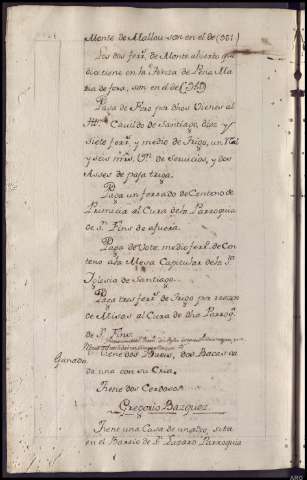 Monte de Mallou son en el de (351)
Los dos ferr.s de Monte abierto que
dice tiene en la de Pena Ma
ria de fora, son en el de (360)
Paga de Foro por dhos Vienes al
Ill.mo Cavildo de Santiago, diez y
siete ferr.s y medio de trigo, un Real
y seis mrs. V.on de Servicios, y dos
Asses de paja triga.
Paga un ferrado de Centeno de
Primicia al Cura de la Parroquia
de S.n Fins de afuera.
Paga de Voto medio ferr.o de Cen
teno a la Mesa Capitular de la S.ta
Iglesia de Santiago.
Paga tres ferr.s de trigo por razon
de Misas al Cura de dha Parroq.a
de S.n Fins.
Ganado
Tiene dos Bueis, dos Bacas ca
da una con su Cria.
Tiene dos Cerdos
Gregorio Bazquez
Tiene una Casa de un alto, sita
en el Barrio de S.n Lazaro Parroquia